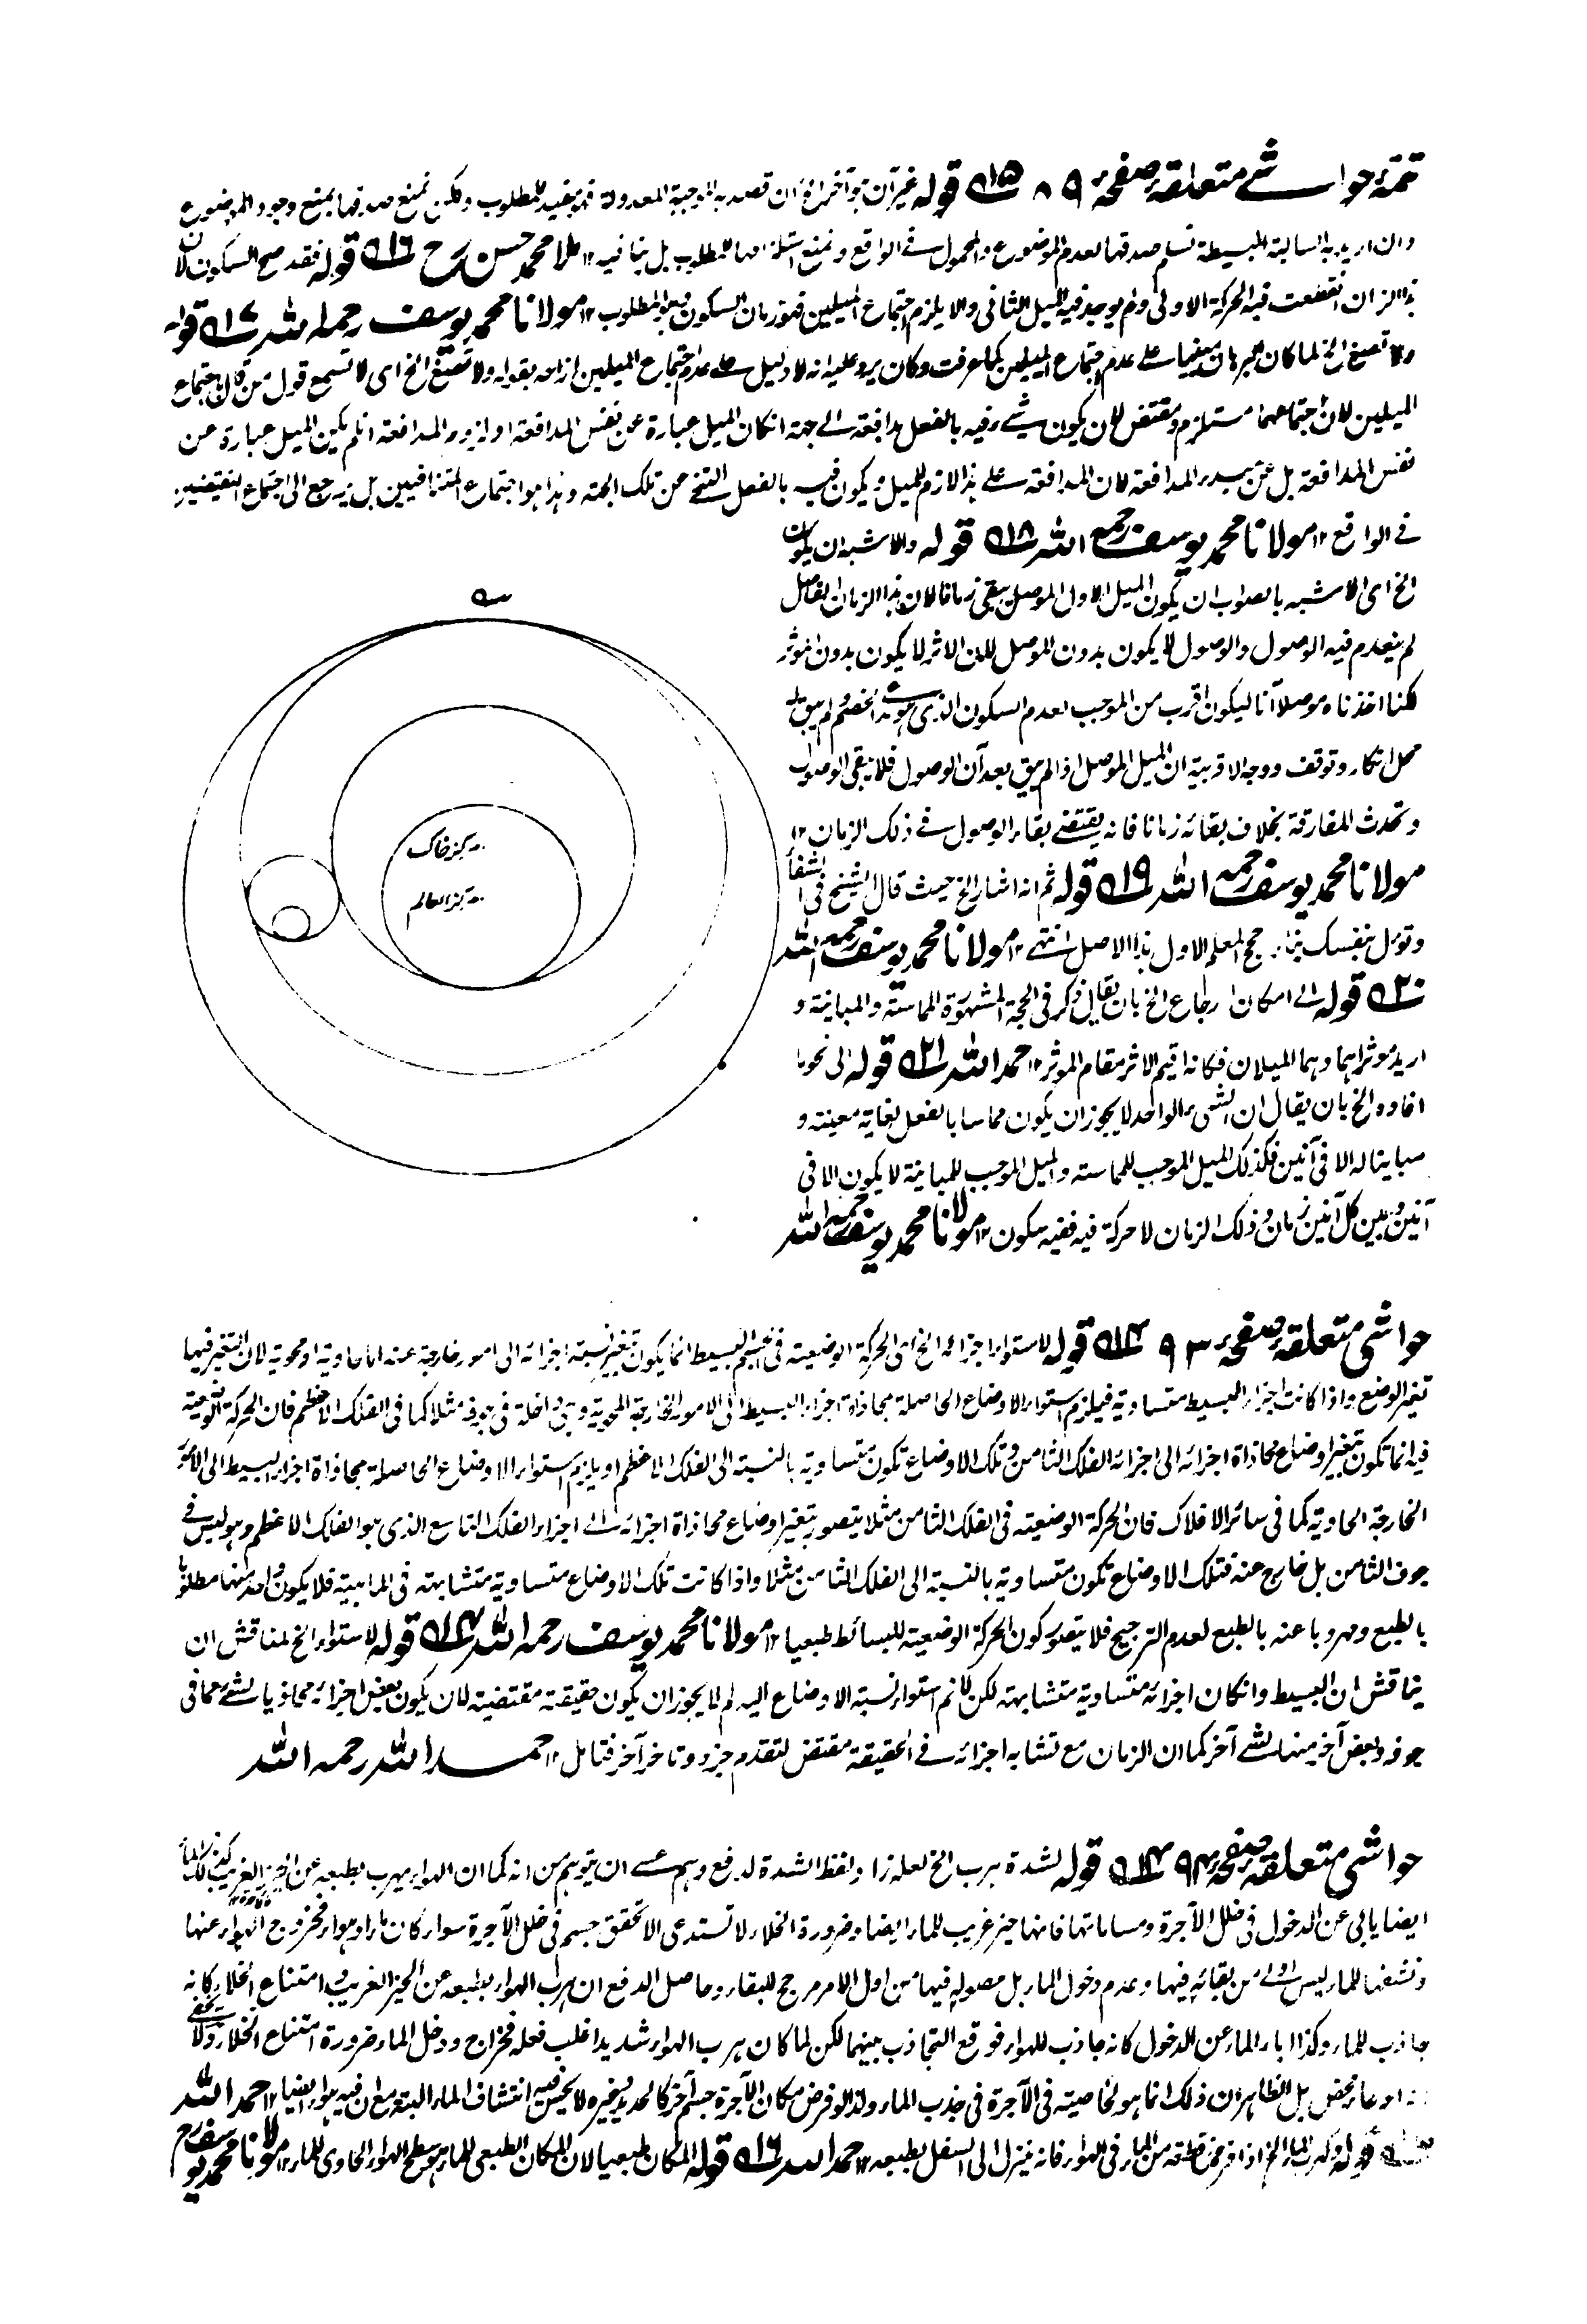 تتمة حواشي متعلقه صفحه ٨٩ ١٥ قوله غير آن هو آخر ان قصد به الموجبة المعدولة فهو يفيد المطلوب ولكن نمنع صدقها بمنع وجود الموضوع
وان اريد به السالبة البسيطة نسلم صدقها لعدم الموضوع والمحمول في الواقع ونمنع استلزامها للمطلوب بل ينافيه ١٢ ملا محمد حسن رح ١٦ قوله فقد صح السكون لان
الزمان انقطعت فيه الحركة الاولى ولم يوجد فيه الميل الثاني والا يلزم اجتماع الميلين فهو زمان السكون وهو المطلوب ١٢ مولانا محمد يوسف رحمه الله ١٧ قوله
ولا تصغ الخ لما كان البرهان مبنيا على عدم اجتماع الميلين كما عرفت وكان يرد عليه انه لا دليل على عدم اجتماع الميلين ازاحه بقوله ولا تصغ الخ اى لا تسمع قول من قال باجتماع
الميلين لان اجتماعهما مستلزم ومقتض لان يكون شيء فيه بالفعل مدافعة الى جهة انكان الميل عبارة عن نفس المدافعة او لزوم المدافعة ان لم يكن الميل عبارة عن
نفس المدافعة بل عن مبدء المدافعة لان المدافعة على هذا لازم للميل ويكون فيه بالفعل التنحى عن تلك الجهة وهذا هو اجتماع المتنافيين بل يرجع الى اجتماع النقيضين
في الواقع ١٢ مولانا محمد يوسف رحمه الله ١٨ قوله والاشبه ان يكون
الخ اى الاشبه بالصواب ان يكون الميل الاول الموصل يبقى زمانا لان هذا الزمان الفاصل
لم ينعدم فيه الوصول والوصول لا يكون بدون الموصل لان الاثر لا يكون بدون المؤثر
لكنا اخذناه موصلا آنا ليكون اقرب من الموجب لعدم السكون الذى هو الخصم ولم يبق له
محل انكار وتوقف ووجه الاقربية ان الميل الموصل اذا لم يبق بعد آن الوصول فلا يبقى الوصول
وتحدث المفارقة بخلاف بقائه زمانا فانه يقتضى بقاء الوصول في ذلك الزمان ١٢
مولانا محمد يوسف رحمه الله ١٩ قوله ثم انه اشار الخ حيث قال الشيخ في الشفأ
وتول بنفسك حجج المعلم الاول بهذا الاصل انتهى ١٢ مولانا محمد يوسف رحمه الله
٢٠ قوله الى امكان ارجاع الخ بان يقال ذكر في الحجة المشهورة المماسة والمباينة و
اريد مؤثراهما وهما الميلان فكانه اقيم الاثر مقام المؤثر ١٢ حمد الله ٢١ قوله الى نحو ما
افاده الخ بان يقال ان الشيء الواحد لا يجوز ان يكون مماسا بالفعل لغاية معينة و
مباينا له الا في آنين فكذلك الميل الموجب للمماسة والميل الموجب للمباينة لا يكون الا في
آنين وبين كل آنين زمان وذلك الزمان لا حركة فيه ففيه سكون ١٢ مولانا محمد يوسف رحمه الله
مركز خاك
مركز العالم
حواشي متعلقه صفحه ٩٣ ١٣ قوله لاستواء اجزائه الخ اى الحركة الوضعية في الجسم البسيط انما يكون بتغير نسبة اجزائه الى امور خارجة عنه اما حاوية او محوية لان التغير فيها
تغير الوضع واذا كانت اجزاء البسيط متساوية فيلزم استواء الاوضاع الحاصلة بمحاذاة اجزاء البسيط الى الامور الخارجة المحوية وهي داخلة في جوفه مثلا كما في الفلك الاعظم فان الحركة الوضعية
فيه انما تكون بتغير اوضاع محاذاة اجزائه الى اجزاء الفلك الثامن وتلك الاوضاع تكون متساوية بالنسبة الى الفلك الاعظم او يلزم استواء الاوضاع الحاصلة بمحاذاة اجزاء البسيط الى الامور
الخارجة الحاوية كما في سائر الافلاك فان الحركة الوضعية في الفلك الثامن مثلا يتصور بتغير اوضاع محاذاة اجزائه الى اجزاء الفلك التاسع الذى هو الفلك الاعظم وهو ليس في
جوف الثامن بل خارج عنه فتلك الاوضاع تكون متساوية بالنسبة الى الفلك الثامن مثلا واذا كانت تلك الاوضاع متساوية متشابهة في الماهية فلا يكون واحد منها مطلوبا
بالطبع ومهروبا عنه بالطبع لعدم الترجيح فلا يتصور كون الحركة الوضعية للبسائط طبعيا ١٢ مولانا محمد يوسف رحمه الله ١٤ قوله لاستواء الخ لمناقش ان
يناقش ان البسيط وانكان اجزائه متساوية متشابهة لكن لا نم استواء نسبة الاوضاع اليه لم لا يجوز ان يكون حقيقته مقتضية لان يكون بعض اجزائه محاذيا لشئ مما في
جوفه وبعض آخر منها لشئ آخر كما ان الزمان مع تشابه اجزائه في الحقيقة مقتض لتقدم جزء وتاخر آخر فتامل ١٢ حمد الله رحمه الله
حواشي متعلقه صفحه ٩٤ ١٤ قوله لشدة هرب الخ لعله زاد لفظ الشدة لدفع وهم عسى ان يتوهم من انه كما ان الهواء يهرب بطبعه عن الحيز الغريب كذلك الماء
ايضا يابى عن الدخول في خلل الآجرة ومساماتها فانها حيز غريب للماء ايضا وضرورة الخلاء لا تستدعى الا تحقق جسم في خلل الآجرة سواء كان ماء او هواء فخروج الهواء عنها
ونشفها للماء ليس اولى من بقائه فيها وعدم دخول الماء بل حصوله فيها من اول الامر مرجح للبقاء وحاصل الدفع ان هرب الهواء بطبعه عن الحيز الغريب وامتناع الخلاء كانه
جاذب للماء وكذا اباء الماء عن الدخول كانه جاذب للهواء فوقع التجاذب بينهما لكن لما كان هرب الهواء شديدا غلب فعله فخراج ودخل الماء ضرورة امتناع الخلاء ولا يخفى
ادعاء محض بل الظاهر ان ذلك انما هو لخاصية في الآجرة في جذب الماء ولذا لو فرض مكان الآجرة جسم آخر كالحديد وغيره لا يحس فيه انتشاف الماء البتة مع ان فيه هواء ايضا ١٢ حمد الله
قوله الخ اذا فرض قطعة من الماء في الهواء فانه ينزل الى اسفل بطبعه ١٢ حمد الله ١٦ قوله المكان طبعيا لان المكان الطبعى للماء هو سطح الهواء الحاوى للماء ١٢ مولانا محمد يوسف رح